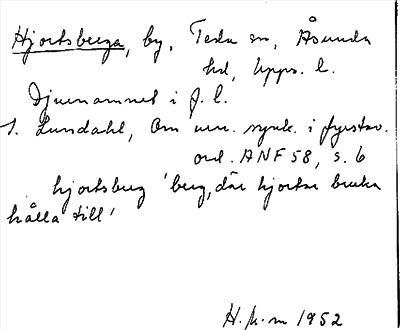 Hjortsberga, by, Teda sn, Åsunda
hd, Upps. l.
Djurnamnet i f. l.
I. Lundahl, Om urn. synk. i fyrstav.
ord. ANF 58, s. 6
hjortsberg 'berg, där hjortar bruka
hålla till'
H. K-m 1952